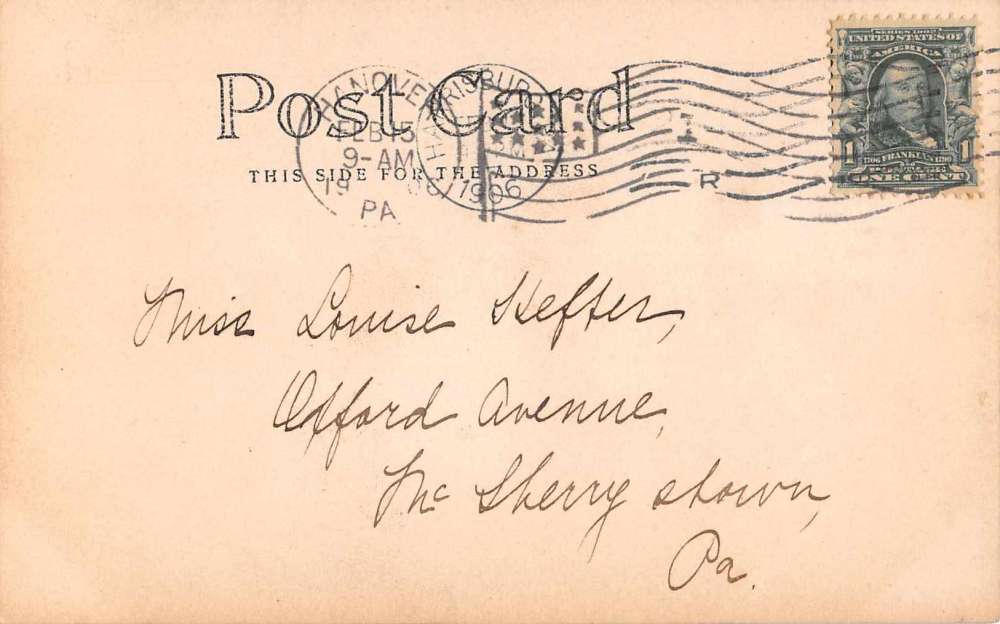 Post Card
THIS SIDE FOR THE ADDRESS
HANOVER
FEB 15
9-AM
1906
PA
HARRISBURG
1906
R
SERIES 1902
UNITED STATES OF
AMERICA
1 1
1706 FRANKLIN 1790
ONE CENT
Miss Louise Hefter,
Offord Avenue,
Mc Sherry stown,
Pa.